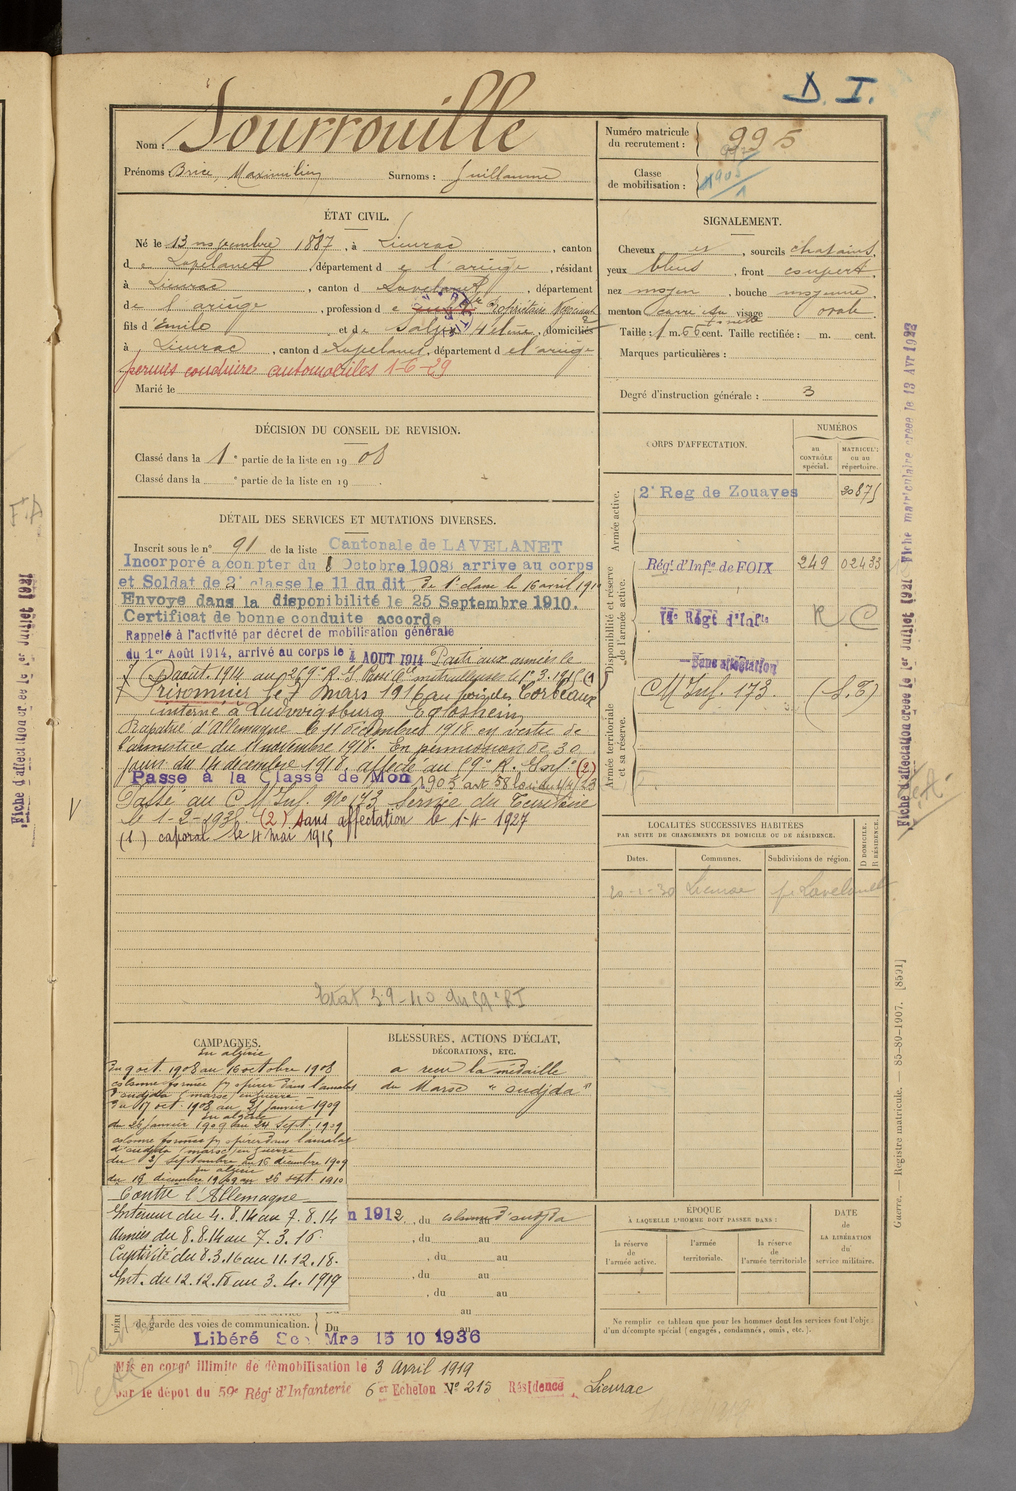 D. I.
Nom : Sourrouille
Prénoms Brice, Maximilien Surnoms : Guillaume
Numéro matricule du recrutement : 995
Classe de mobilisation : 1905
ÉTAT CIVIL.
Né le 13 novembre 1887, à Lieurac, canton
de Lavelanet, département de l'ariège, résidant
à Lieurac, canton de Lavelanet, département
de l'ariège, profession de Propriétaire
fils d'Emile et de domiciliés
à Lieurac, canton de Lavelanet, département de l'ariège
permis conduire automobiles 1-6-29
Marié le
SIGNALEMENT.
Cheveux et, sourcils chatains,
yeux bleus, front couvert,
nez moyen, bouche moyenne,
menton visage ovale
Taille : 1 m. 66 cent. Taille rectifiée : m. cent.
Marques particulières :
Degré d'instruction générale : 3
DÉCISION DU CONSEIL DE REVISION.
Classé dans la 1e partie de la liste en 1908
Classé dans la e partie de la liste en 19 .
DÉTAIL DES SERVICES ET MUTATIONS DIVERSES.
Inscrit sous le n° 91 de la liste Cantonale de LAVELANET
Incorporé à compter du 8 Octobre 1908 arrivé au corps
et Soldat de 2e classe le 11 du dit, de 1e classe le 16 avril 1910
Envoyé dans la disponibilité le 25 Septembre 1910.
Certificat de bonne conduite accordé
Rappelé à l'activité par décret de mobilisation générale
du 1er Août 1914, arrivé au corps le 4 AOUT 1914 Parti aux armées le
8 août 1914 au 259e R. I. Passé Cie mitrailleuses le 1er. 3. 1915 (1)
Prisonnier le 7 mars 1916 au bois des Corbeaux
interné à Ludwigsburg Eglosheim
Rapatrié d'Allemagne le 11 décembre 1918 en vertu de
l'armistice du 11 novembre 1918. En permission de 30
jours du 14 décembre 1918. affecté au 59e R. d'Infie (2)
Passé à la Classe de Mon 1905 art 58 loi du 1/4/23
Passé au C M Inf. No 173 Service du Territoire
le (2) sans affectation le 1-4-1927
(1) caporal le 4 mai 1915
Etat 39-40 du 59e RI
CORPS D'AFFECTATION.
NUMÉROS
au CONTRÔLE spécial.
MATRICULE ou au répertoire.
Armée active.
2e Reg de Zouaves 30875
Disponibilité et réserve de l'armée active.
Régt d'Infie de FOIX 249 02433
14e Régt d'Infie R C
Sans affectation
Armée territoriale et sa réserve.
C M Inf. 173. (S.T)
LOCALITÉS SUCCESSIVES HABITÉES
PAR SUITE DE CHANGEMENTS DE DOMICILE OU DE RÉSIDENCE.
Dates. Communes. Subdivisions de région. D DOMICILE. R RÉSIDENCE.
20-1-30 Lieurac Lavelanet
CAMPAGNES.
en algérie
du 9 oct. 1908 au 16 octobre 1908
colonne formée pr opérer dans l'amalat
d'oudjda (maroc) en guerre
du 17 oct. 1908 au 25 janvier 1909
en algérie
du 26 janvier 1909 au 24 Sept. 1909
colonne formée pr opérer dans l'amalat
d'oudjda (maroc) en guerre
du 25 septembre au 15 décembre 1909
en algérie
du 16 décembre 1909 au 25 sept. 1910
Contre l'Allemagne
Intérieur du 4. 8. 14 au 7. 8. 14
Armées du 8. 8. 14 au 7. 3. 16
Captivité du 8. 3. 16 au 11. 12. 18.
Int. du 12. 12. 18 au 3. 4. 1919
BLESSURES, ACTIONS D'ÉCLAT,
DÉCORATIONS, ETC.
a reçu la médaille
du Maroc "oudjda"
n 1912, du au
, du au
, du au
, du au
, du au
au
de garde des voies de communication. Du au
Libéré Mre 15 10 1936
ÉPOQUE
À LAQUELLE L'HOMME DOIT PASSER DANS :
la réserve de l'armée active.
l'armée territoriale.
la réserve de l'armée territoriale
DATE de LA LIBÉRATION du service militaire.
Ne remplir ce tableau que pour les hommes dont les services font l'objet
d'un décompte spécial (engagés, condamnés, omis, etc.).
Mis en congé illimité de démobilisation le 3 Avril 1919
par le dépot du 59e Régt d'Infanterie 6e Echelon N° 215 Résidence Lieurac
Fiche d'affectation créée le 1er Juillet 1921
Fiche d'affectation créée le 1er Juillet 1921 Fiche matriculaire créée le 13 Avr 1922
Guerre. — Registre matricule. — 85-89-1907. [8591]